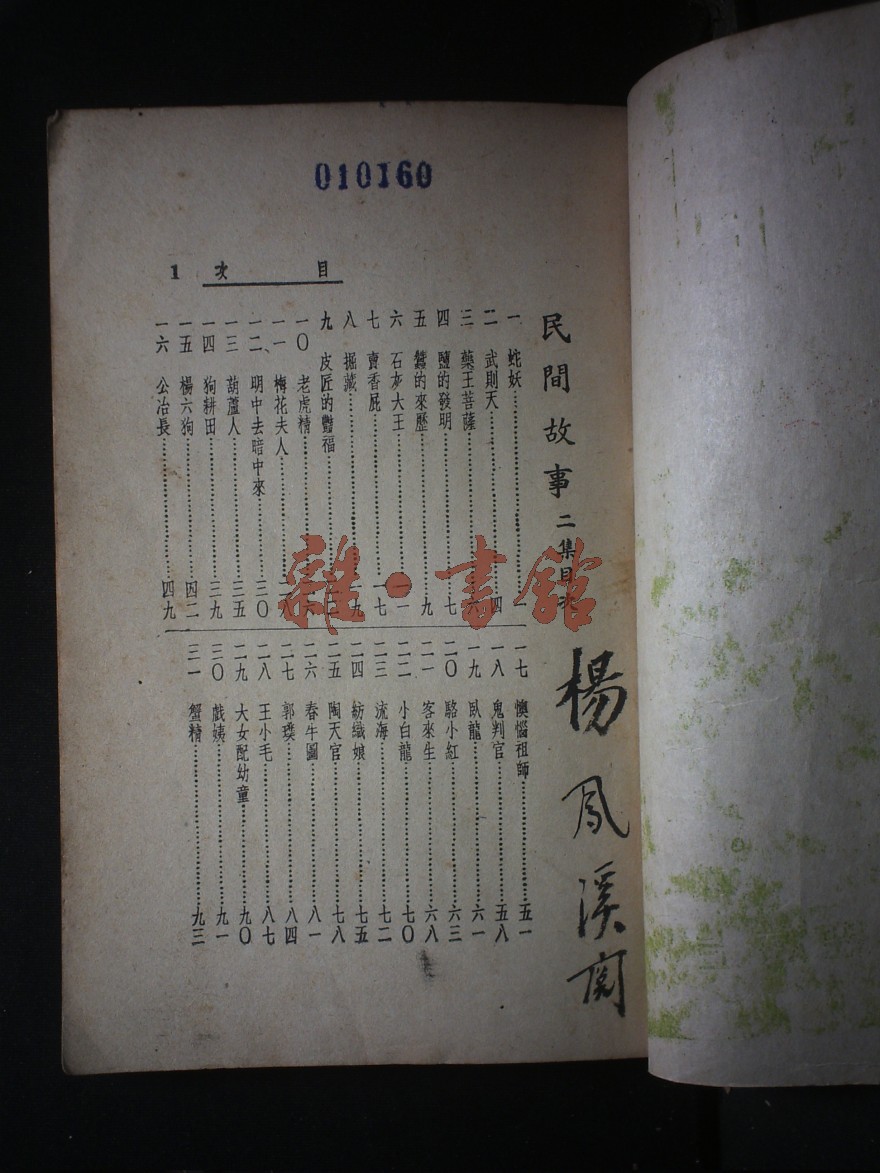 010160
目次 1
民間故事 二集目次
一 蛇妖……一
二 武則天……四
三 藥王菩薩……六
四 鹽的發明……七
五 蠶的來歷……九
六 石灰大王……一一
七 賣香屁……一七
八 掘藏……
九 皮匠的豔福……
一〇 老虎精……
一一 梅花夫人……二八
一二、 明中去暗中來……三〇
一三 葫蘆人……三五
一四 狗耕田……三九
一五 楊六狗……四二
一六 公冶長……四九
一七 懊惱祖師……五一
一八 鬼判官……五八
一九 臥龍……六一
二〇 駱小紅……六三
二一 客來生……六八
二二 小白龍……七〇
二三 流海……七二
二四 紡織娘……七五
二五 陶天官……七八
二六 春牛圖……八一
二七 郭璞……八四
二八 王小毛……八七
二九 大女配幼童……九〇
三〇 戲姨……九一
三一 蟹精……九三
楊鳳溪閱
雜·書館